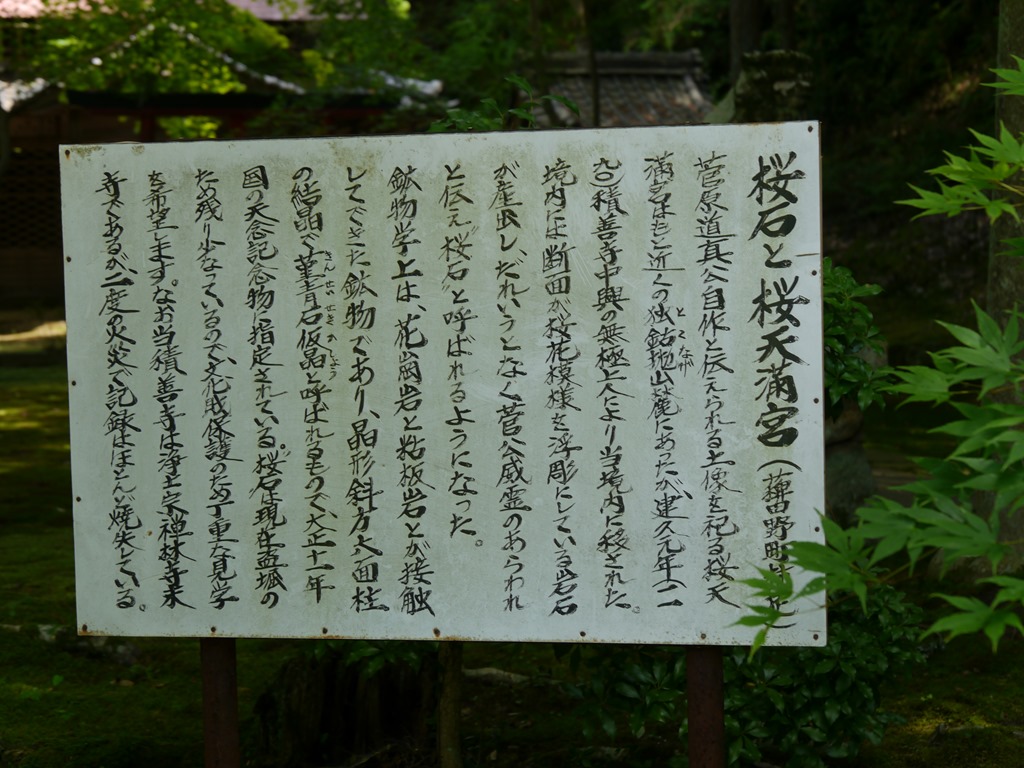 桜石と桜天満宮(薭田野町
菅原道真公自作と伝えられる土像を祀る桜天
満宮はもと近くの独鈷抛山麓にあったが、建久元年(一一
九〇)積善寺中興の無極上人により当境内に移された。
境内には断面が桜花模様を浮彫にしている岩石
が産出し、だれいうとなく菅公威霊のあらわれ
と伝え“桜石”と呼ばれるようになった。
鉱物学上は、花崗岩と粘板岩とが接触
してできた鉱物であり、晶形斜方六面柱
の結晶で菫青石仮晶と呼ばれるもので、大正十一年
国の天念記念物に指定されている。“桜石”は現在盗堀の
ため残り少なっているので、文化財保護のため丁重な見学
を希望します。なお当積善寺は浄土宗禅林寺末
寺であるが、二度の火災で記録はほとんど焼失している。
とくなげ
きんせいせきかしょう